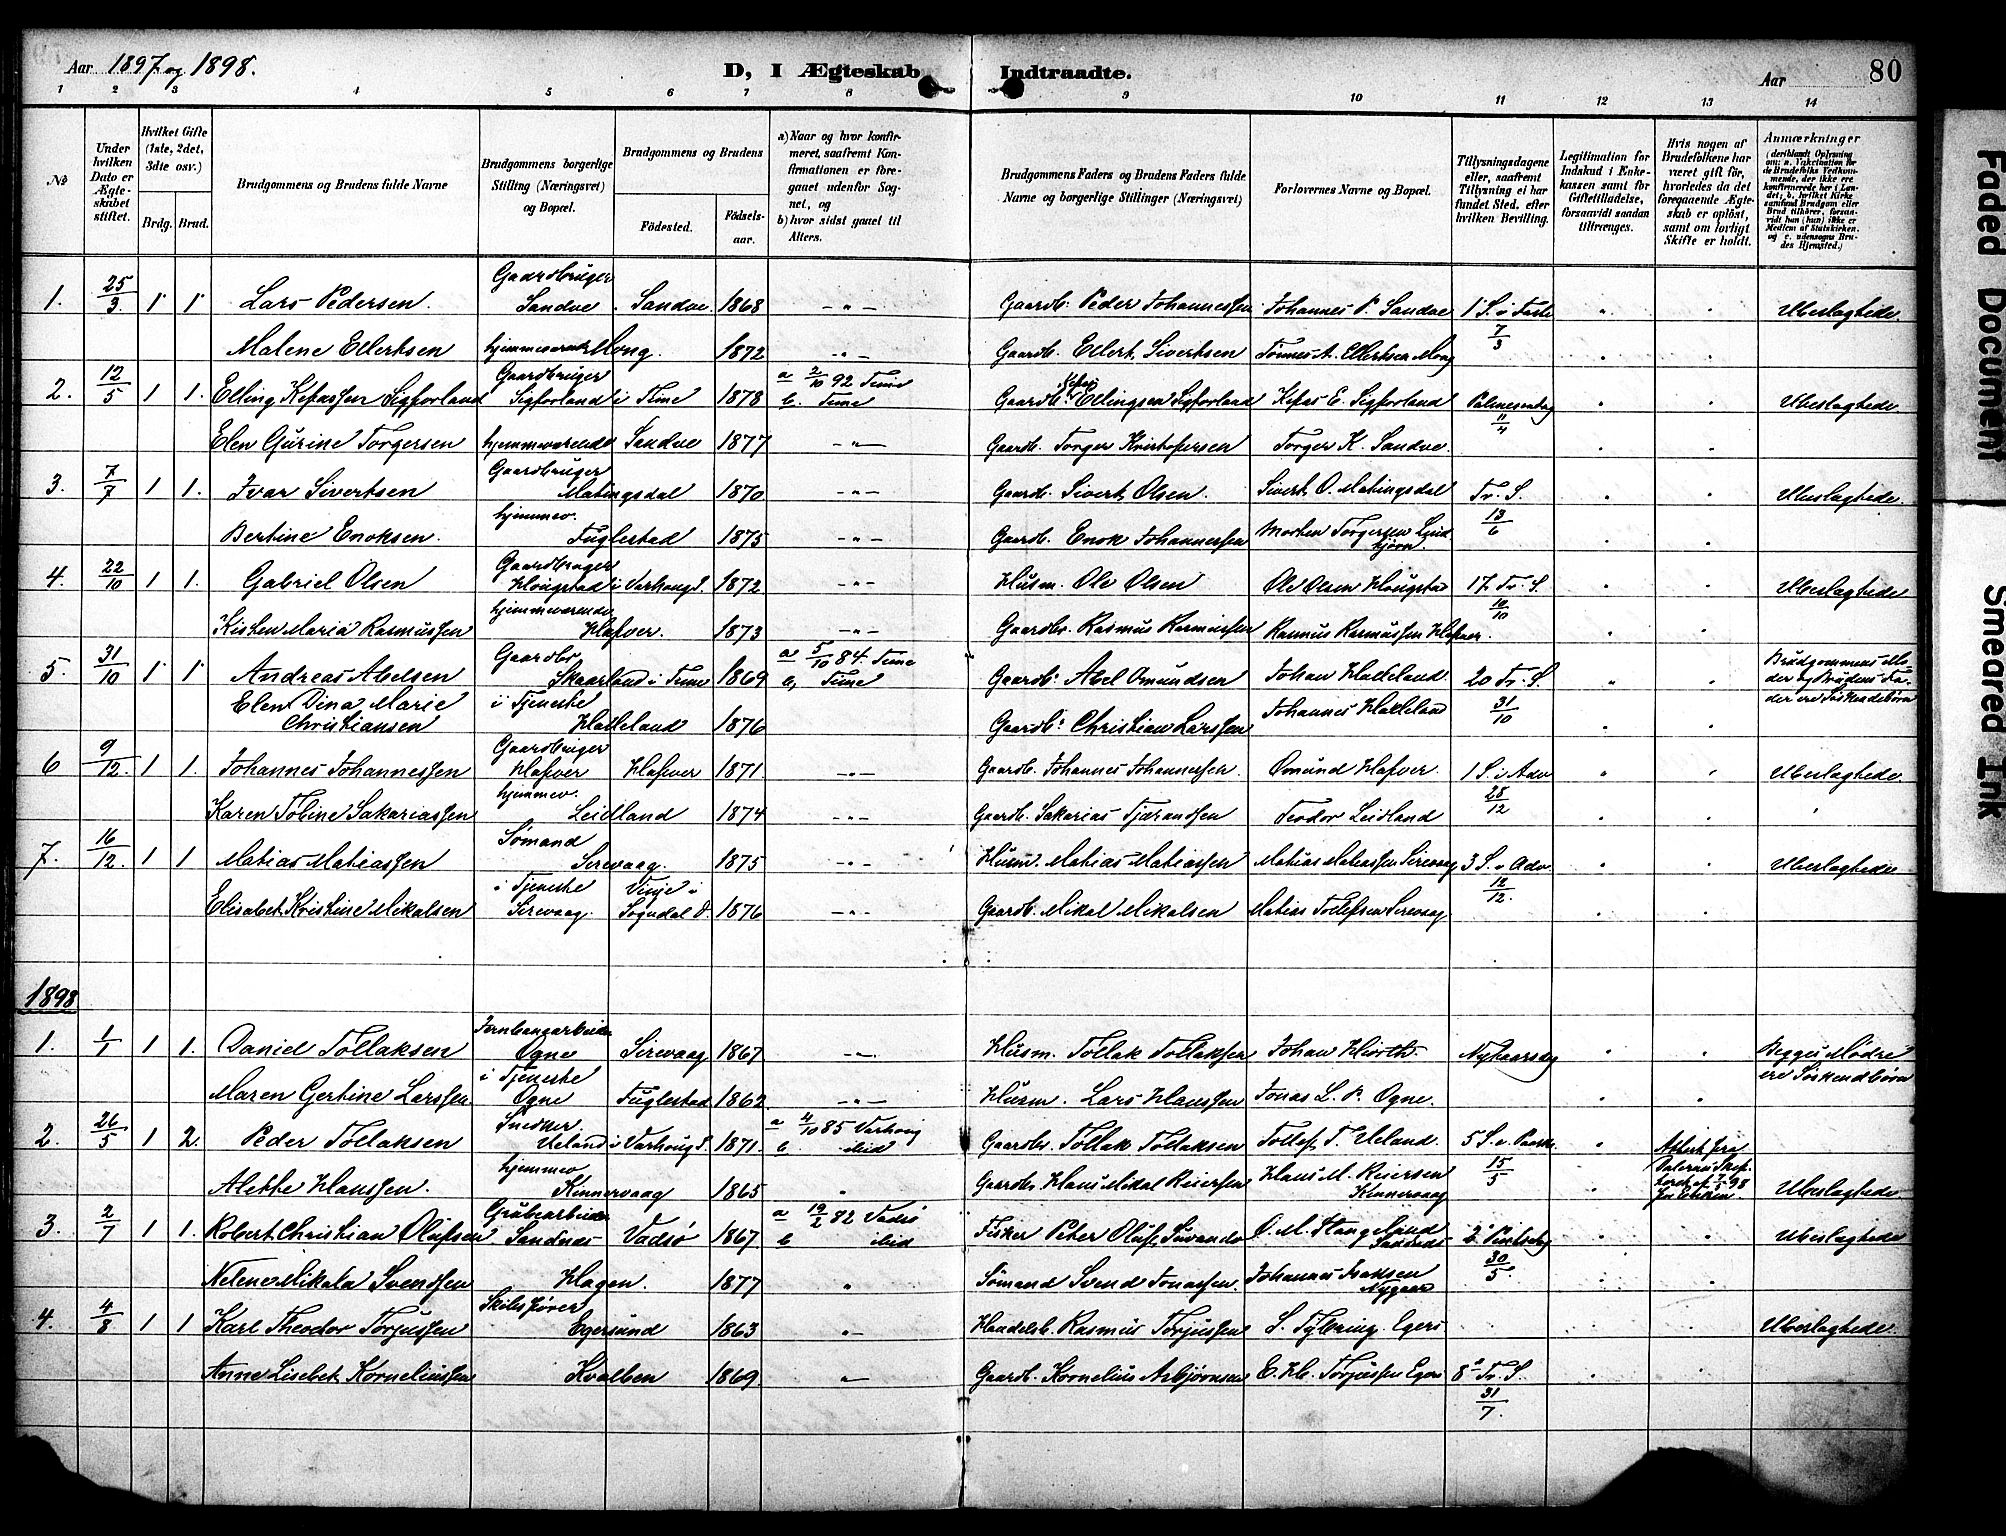 Aar 1897 og 1898.
D, I Ægteskab Indtraadte.
Aar 80
1 2 3 4 5 6 7 8 9 10 11 12 13 14
№
Under hvilken Dato er Ægteskabet stiftet.
Hvilket Gifte (1ste, 2det, 3dte osv.)
Brdg. Brud.
Brudgommens og Brudens fulde Navne
Brudgommens borgerlige Stilling (Næringsvei) og Bopæl.
Brudgommens og Brudens
Fødested.
Fødselsaar.
a) Naar og hvor konfirmeret, saafremt Konfirmationen er foregaaet udenfor Sognet, og
b) hvor sidst gaaet til Alters.
Brudgommens Faders og Brudens Faders fulde Navne og borgerlige Stillinger (Næringsvei)
Forlovernes Navne og Bopæl.
Tillysningsdagene eller, saafremt Tillysning ei har fundet Sted, efter hvilken Bevilling.
Legitimation for Indskud i Enkekassen samt for Giftetilladelse, forsaavidt saadan tiltrænges.
Hvis nogen af Brudefolkene har været gift før, hvorledes da det foregaaende Ægteskab er opløst, samt om lovligt Skifte er holdt.
Anmærkninger (deriblandt Oplysning om: a. Vakcination for de Brudefolks Vedkommende, der ikke ere konfirmerede her i Landet; b. hvilket Kirkesamfund Brudgom eller Brud tilhører, forsaavidt han (hun) ikke er Medlem af Statskirken, og c. udensogns Brudes Hjemsted.)
1. 25/3 1 1 Lars Pedersen. Gaardbruger Sandve Sandve. 1868 -"- Gaardb. Peder Johannessen Johannes P. Sandve 1 S. i Faste 7/3 " " Ubeslægtede.
Malene Ellertsen hjemmeværende Mong. 1872 -"- Gaardb. Ellert Sivertsen Tønnes A. Ellertsen Mong
2. 12/5 1 1. Elling Kefassen Sigforland Gaardbruger Sigforland i Time 1878 a 2/10 92 Time b. Time Gaardb. Kefas Ellingsen Sigforland Kefas E. Sigforland Palmesøndag 11/4 " " Ubeslægtede
Elen Gurine Torgersen hjemmeværende Sandve 1877 -"- Gaardb. Torger Kristofersen Torger K. Sandve.
3. 7/7 1 1. Ivar Sivertsen Gaardbruger Matingsdal 1870 -"- Gaardb. Sivert Olsen. Sivert O. Matingsdal Tr. S. 13/6 Ubeslægtede.
Bertine Enoksen. hjemmev. Fuglestad 1875 -"- Gaardb. Enok Johannessen Morten Torgersen
4. 22/10 1 1. Gabriel Olsen Gaardbruger Haugstad i Varhoug S. 1872 -"- Husm. Ole Olsen Ole Olsen Haugstad 17 Tr. S. 10/10 Ubeslægtede
Kisten Maria Rasmussen hjemmeværende Hafver. 1873 -"- Gaardbr. Rasmus Rasmussen Rasmus Rasmussen Hafver.
5. 31/10 1 1 Andreas Abelsen Gaardbr Skaarland i Time 1869 a 5/10 84 Time b, Time Gaardb. Abel Omundsen Johan Hadleland. 20 Tr. S. 31/10 Brudgommens Moder og Brudens Fader ere Søskendebørn
Elen Dina Marie Christiansen i Tjeneste Hadleland 1876 Gaardb. Christian Larssen Johannes Hadleland
6 9/12. 1 1. Johannes Johannessen Gaardbruger Hafver Hafver 1871 -"- Gaardb. Johannes Johannessen. Omund Hafver. 1 S. i Adv 28/12 Ubeslægtede
Karen Tobine Sakariassen hjemmev. Leidland 1874 -"- Gaardb. Sakarias Tjerandsen Teodor Leidland
7. 16/12. 1 1 Matias Matiassen Sømand Sirevaag. 1875 -"- Husm. Matias Matiassen Matias Matiassen Sirevaag 3 S. i Adv. 12/12. Ubeslægtede
Elisabet Kristine Mikalsen i Tjeneste Sirevaag. Vinje i Sogndal D. 1876 -"- Gaardb. Mikal Mikalsen Matias Tollefsen Sirevaag
1898
1. 1/1 1 1. Daniel Tollaksen Jernbanearbeider Ogne Sirevaag 1867 -"- Husm. Tollak Tollaksen Johan Hiorth. Nytaarsdag Begges Mødre ere Søskendbørn
Maren Gertine Larssen i Tjeneste Ogne Fuglestad 1862 -"- Husm. Lars Hanssen Jonas L. P. Ogne.
2. 26/5 1 2. Peder Tollaksen Snedker. Ueland i Varhoug S. 1871. a 4/10 85 Varhoug b ibid Gaardbr. Tollak Tollaksen Tollef T. Ueland. 5 S. e. Paaske 15/5 Attest fra
Alette Hanssen. hjemmev Kinnervaag 1865 " Gaardbr. Hans Mikal Reiersen Hans M. Reiersen Kinnervaag Ubeslægtede
3. 2/7 1 1. Robert Christian Olufsen Grubearbeider Sandnæs Vadsø 1867. a 19/2 82 Vadsø b ibid Fisker Peter Oluf O. M. Stangeland Sandnæs 2' Pintsedag 30/5. Ubeslægtede
Nelene Mikala Svendsen Hagen. 1877 " Sømand Svend Jonassen. Johannes Isaksen Nygaard
4. 4/8 1 1 Karl Theodor Torjussen Skibsfører Egersund 1863 "- Handelsb. Rasmus Torjussen Egers Ubeslægtede.
Anne Lisebet Korneliussen Kvalben 1869. "- Gaardb. Kornelius Asbjørnsen Torjussen Egers 8 Tr. S. 31/7.
Faded Document
Smeared Ink